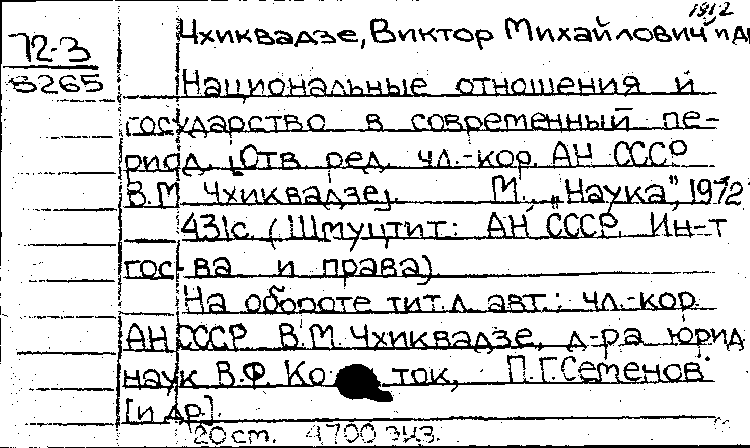 1912
72-3
8265
Чхиквадзе, Виктор Михайлович и д
Национальные отношения и
государство в современный пе-
риод. [Отв. ред. чл.-кор. АН СССР
В.М. Чхиквадзе]. М., „Наука", 1972
431с. (Шмуцтит: АН СССР. Ин-т
гос-ва и права).
На обороте тит.л. авт.: чл.-кор.
АН СССР В.М. Чхиквадзе, д-ра юрид
наук В.Ф. Ко ток, П.Г. Семенов
[и др.].
20 cm. 4700 экз.